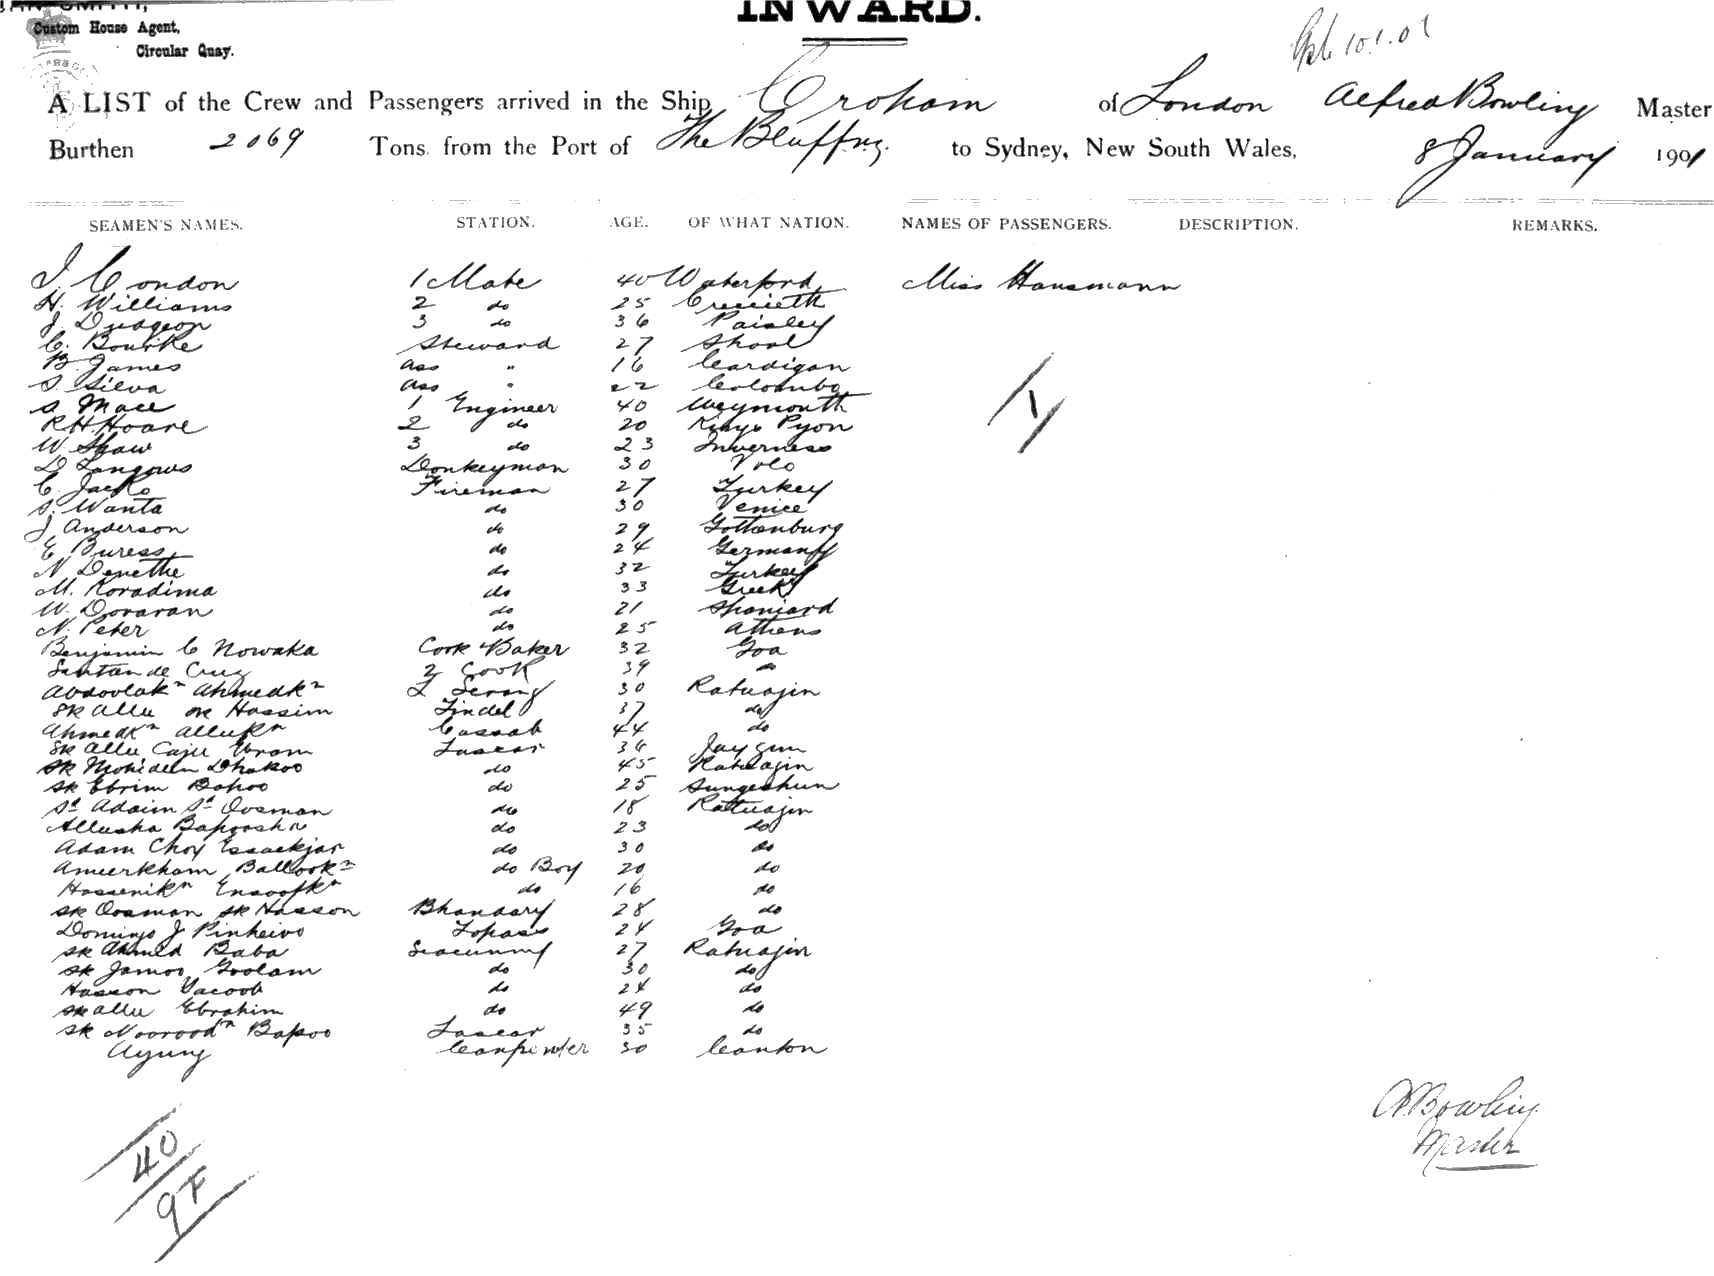 INWARD.
Custom House Agent,
Circular Quay.
10.1.01
A LIST of the Crew and Passengers arrived in the Ship Croham of London Alfred Bowling Master
Burthen 2069 Tons from the Port of The Bluff to Sydney, New South Wales, 8 January 1901
SEAMEN'S NAMES. STATION. AGE. OF WHAT NATION. NAMES OF PASSENGERS. DESCRIPTION. REMARKS.
J. Condon 1 Mate 40 Waterford Miss Hansmann
H. Williams 2 do 25 Criccieth
J Dudgeon 3 do 36 Paisley
C. Bourke Steward 27
B. James ass " 16 Cardigan
S. Silva ass " 22 Colombo
A Mace 1 Engineer 40 Weymouth
R H Hoare 2 do 20 Kings Pyon
W. Shaw 3 do 23 Inverness
D Langows Donkeyman 30 Volo
C. Jacko Fireman 27 Turkey
S. Wanta do 30 Venice
J Anderson do 29 Gottenburg
E Buress do 24 Germany
N Denethe do 32 Turkey
M. Koradima do 33 Greek
W. Doraran do 21 Spaniard
N. Peter do 25 Athens
Benjamin C Nowaka Cook & Baker 32 Goa
de Cruz 2 Cook 39 do
Ahmedkn 1 Serang 30 Ratnagiri
Sk Allie sk Hassim Tindel 37 do
Ahmedkn Allikn Cassab 44 do
Sk Allie Cajie Ebram Lascar 36
Sk Mohideen Dhakoo do 45 Ratnagiri
Sk Ebrim Bapoo do 25
Sd Adaim Sd Oosman do 18 Ratnagiri
Allisha Bapoosha do 23 do
Adam Choy Essackjar do 30 do
Ameerkham Ballookn do Boy 20 do
Hossenikn do 16 do
Sk Oosman sk Hasson Bhandary 28 do
Domingo J Pinheiro Topass 24 Goa
Sk Ahmed Baba Seacunny 27 Ratnagiri
Sk Jamoo Goolam do 30 do
Hasson Yacoob do 24 do
Sk allie Ebrahim do 49 do
Sk Noorood n Bapoo Lascar 35 do
Ayung Carpenter 30 Canton
1
40
9F
A Bowling
Master